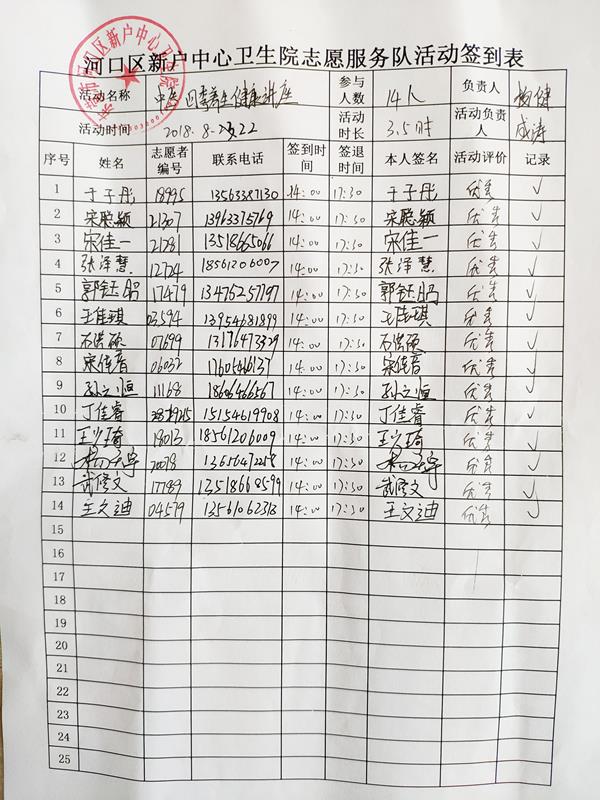 河口区新户中心卫生院志愿服务队活动签到表
活动名称 中医四季养生健康讲座 参与人数 14人 负责人
活动时间 2018.8.22 活动时长 3.5时 活动负责人 成涛
序号 姓名 志愿者编号 联系电话 签到时间 签退时间 本人签名 活动评价 记录
1 于子彤 18995 13563387130 14:00 17:30 于子彤 优秀 ✓
2 宋聪颖 21307 13963375769 14:00 17:30 宋聪颖 优秀 ✓
3 宋佳一 21281 13518665066 14:00 17:30 宋佳一 优秀 ✓
4 张泽慧 12724 18561206007 14:00 17:30 张泽慧 优秀 ✓
5 郭钰昭 17479 13475257197 14:00 17:30 郭钰昭 优秀 ✓
6 王佳琪 03594 13954681899 14:00 17:30 王佳琪 优秀 ✓
7 石浩硕 07699 13176473329 14:00 17:30 石浩硕 优秀 ✓
8 宋佳音 06032 17605461137 14:00 17:30 宋佳音 优秀 ✓
9 孙之恒 11168 18606466567 14:00 17:30 孙之恒 优秀 ✓
10 丁佳睿 15154619908 14:00 17:30 丁佳睿 优秀 ✓
11 18013 18561206009 14:00 17:30 优秀 ✓
12 20078 13656472258 14:00 17:30 优秀 ✓
13 武修文 17789 13518668599 14:00 17:30 武修文 优秀 ✓
14 王文迪 04579 13561062313 14:00 17:30 王文迪 优秀 ✓
15
16
17
18
19
20
21
22
23
24
25